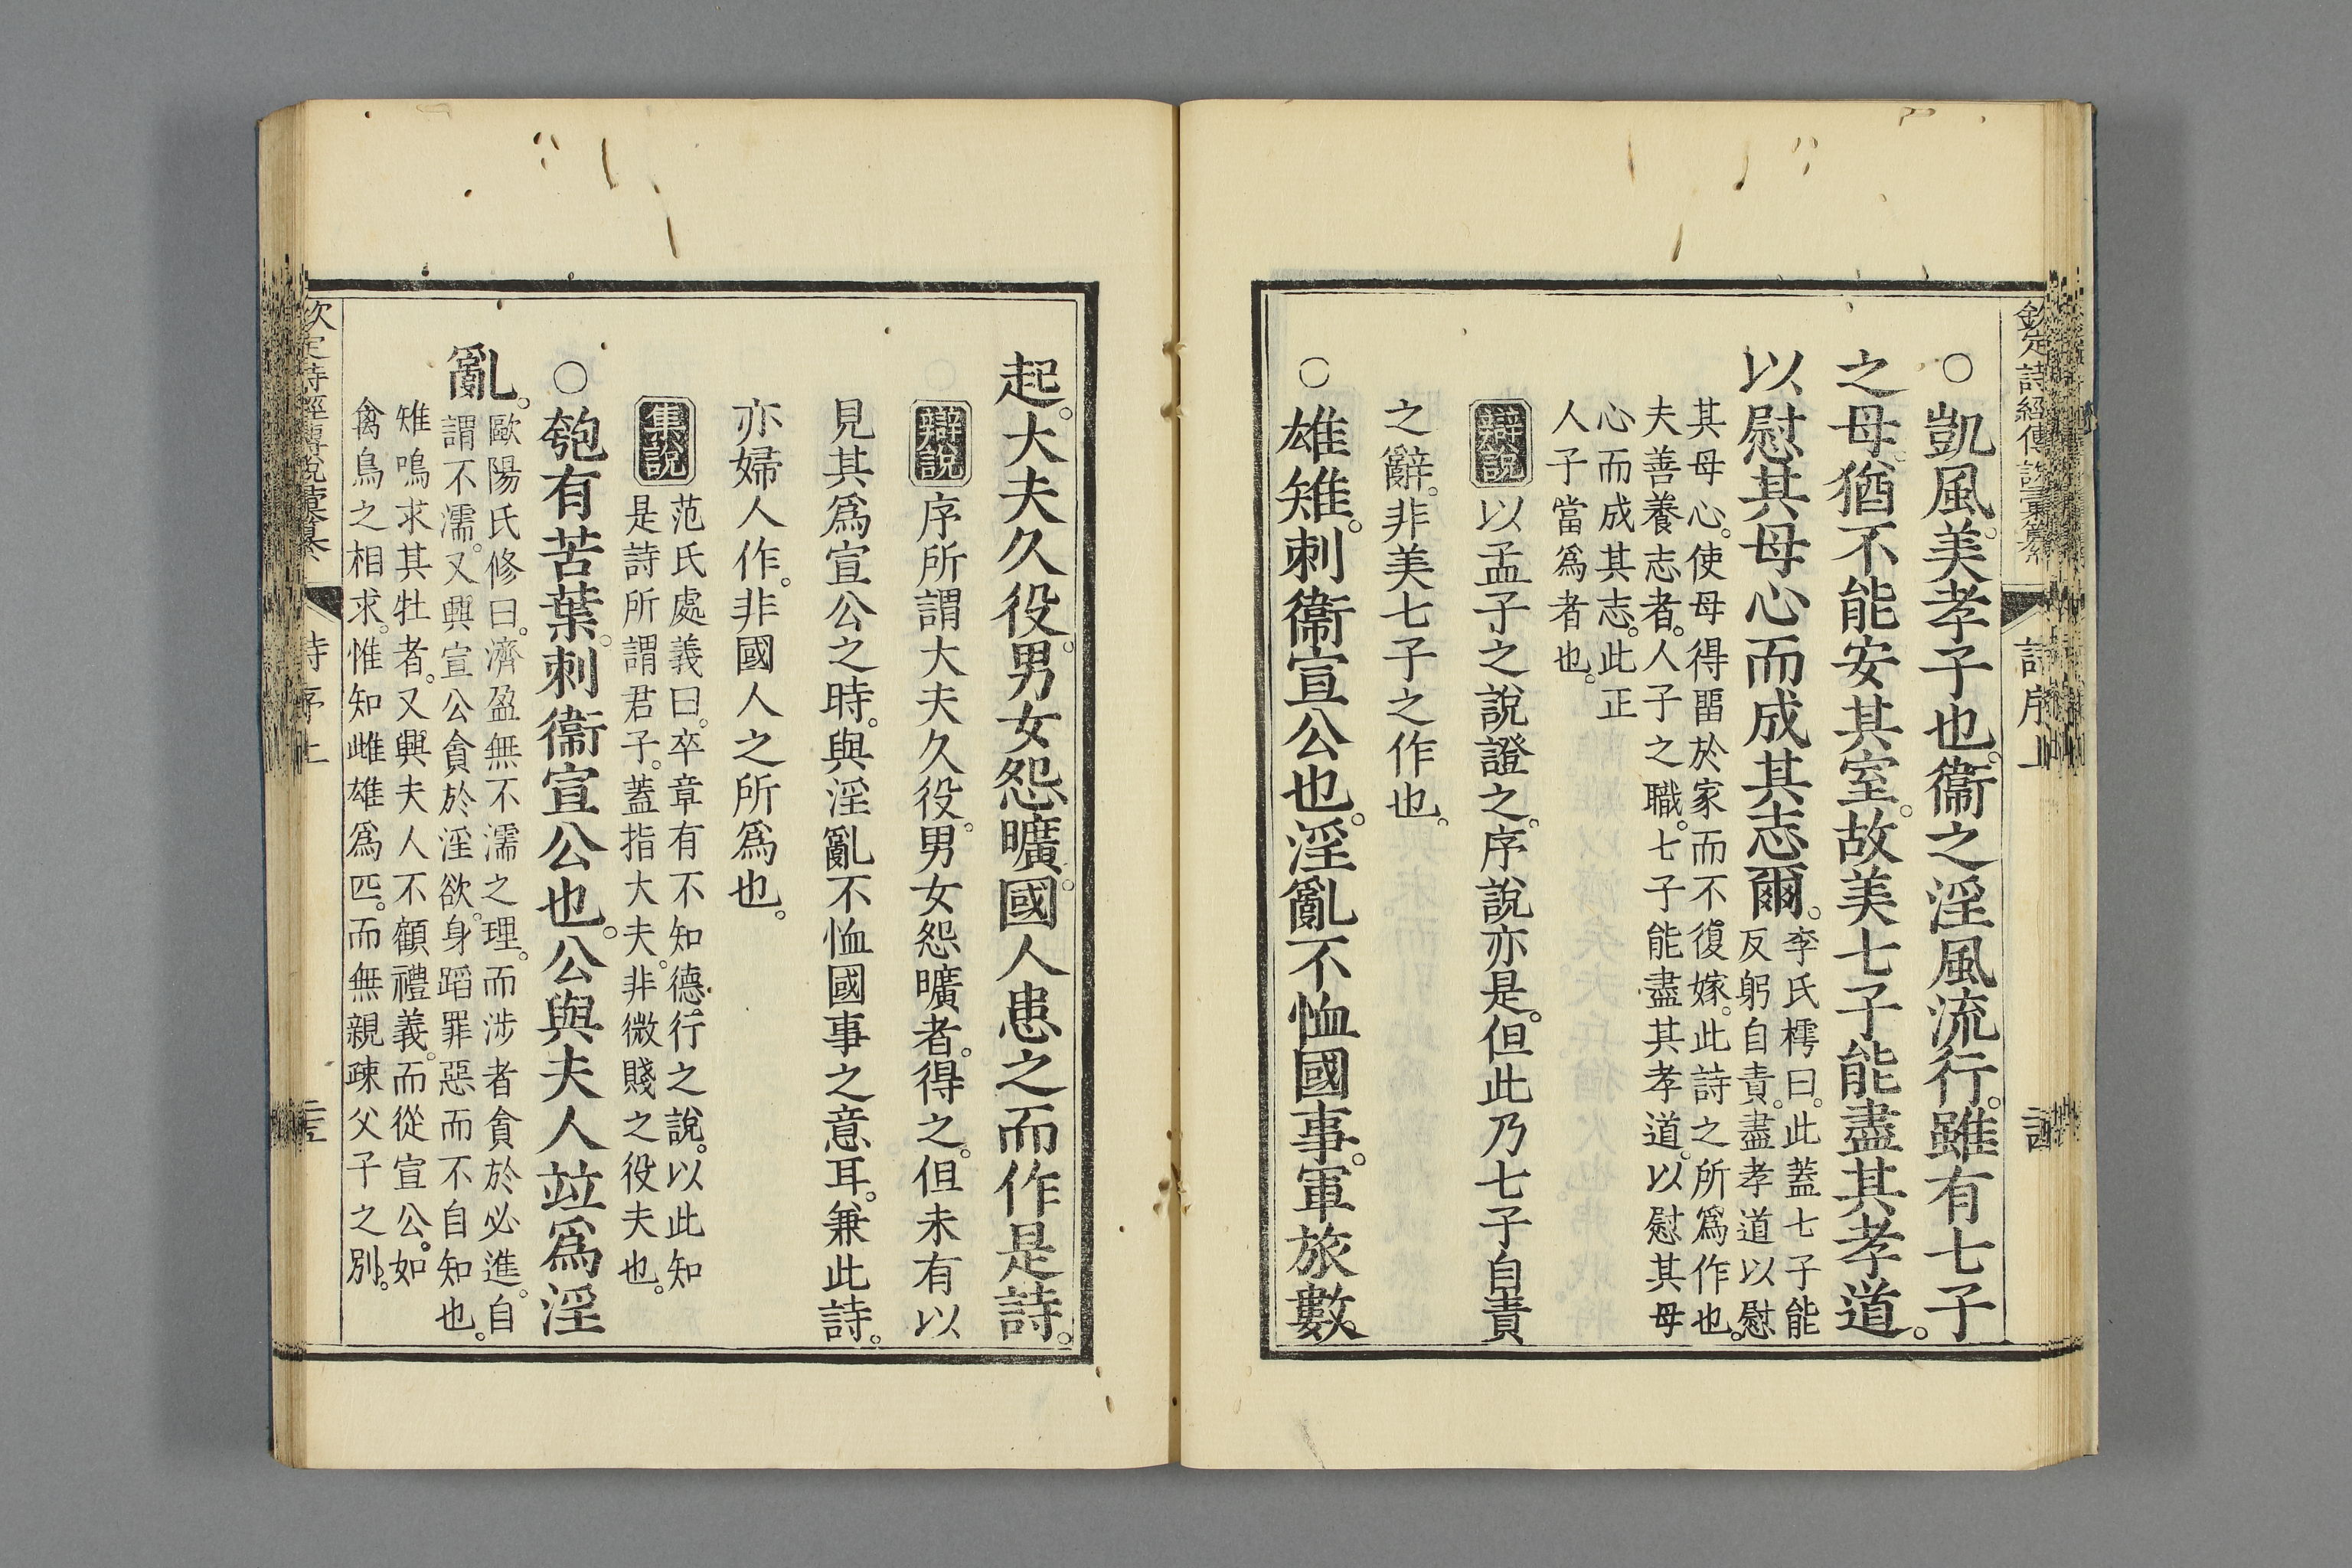 欽定詩經傳說彙纂 詩序上
○凱風。美孝子也。衞之淫風流行。雖有七子
之母。猶不能安其室。故美七子能盡其孝道。
以慰其母心而成其志爾。李氏樗曰。此蓋七子能
反躬自責。盡孝道以慰
其母心。使母得畱於家而不復嫁。此詩之所爲作也。
夫善養志者。人子之職。七子能盡其孝道。以慰其母
心而成其志。此正
人子當爲者也。
辯說 以孟子之說證之。序說亦是。但此乃七子自責
之辭。非美七子之作也。
○雄雉。刺衞宣公也。淫亂不恤國事。軍旅數
起。大夫久役。男女怨曠。國人患之而作是詩。
辯說 序所謂大夫久役。男女怨曠者。得之。但未有以
見其爲宣公之時。與淫亂不恤國事之意耳。兼此詩。
亦婦人作。非國人之所爲也。
集說 范氏處義曰。卒章有不知德行之說。以此知
是詩所謂君子。蓋指大夫。非微賤之役夫也。
○匏有苦葉。刺衞宣公也。公與夫人竝爲淫
亂。歐陽氏修曰。濟盈無不濡之理。而涉者貪於必進。自
謂不濡。又興宣公貪於淫欲。身蹈罪惡而不自知也。
雉鳴求其牡者。又興夫人不顧禮義。而從宣公。如
禽鳥之相求。惟知雌雄爲匹。而無親疎父子之別。
欽定詩經傳說彙纂 詩序上